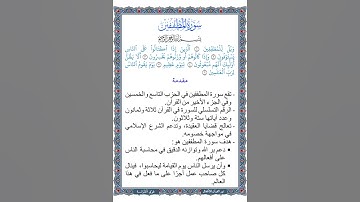 سورة المطففين
بسم الله الرحمن الرحيم
ويل للمطففين ۝ الذين إذا اكتالوا على الناس
يستوفون ۝ وإذا كالوهم أو وزنوهم يخسرون ۝ ألا يظن
أولئك أنهم مبعوثون ۝ ليوم عظيم ۝ يوم يقوم الناس
لرب العالمين ۝
مقدمة
- تقع سورة المطففين في الحزب التاسع والخمسين
وفي الجزء الأخير من القرآن.
- الرقم التسلسلي للسورة في القرآن ثلاثة وثمانون
وعدد آياتها ستة وثلاثون.
- تعالج قضايا العقيدة، وتدعم الشرع الإسلامي
في مواجهة خصومه.
- هدف سورة المطففين هو:
• دعم بر الله وتوازنه الدقيق في محاسبة الناس
على أفعالهم.
• وأن يرسل الناس يوم القيامة ليحاسبوا، فينال
كل صاحب عمل أجرًا على ما فعل في هذا
العالم.